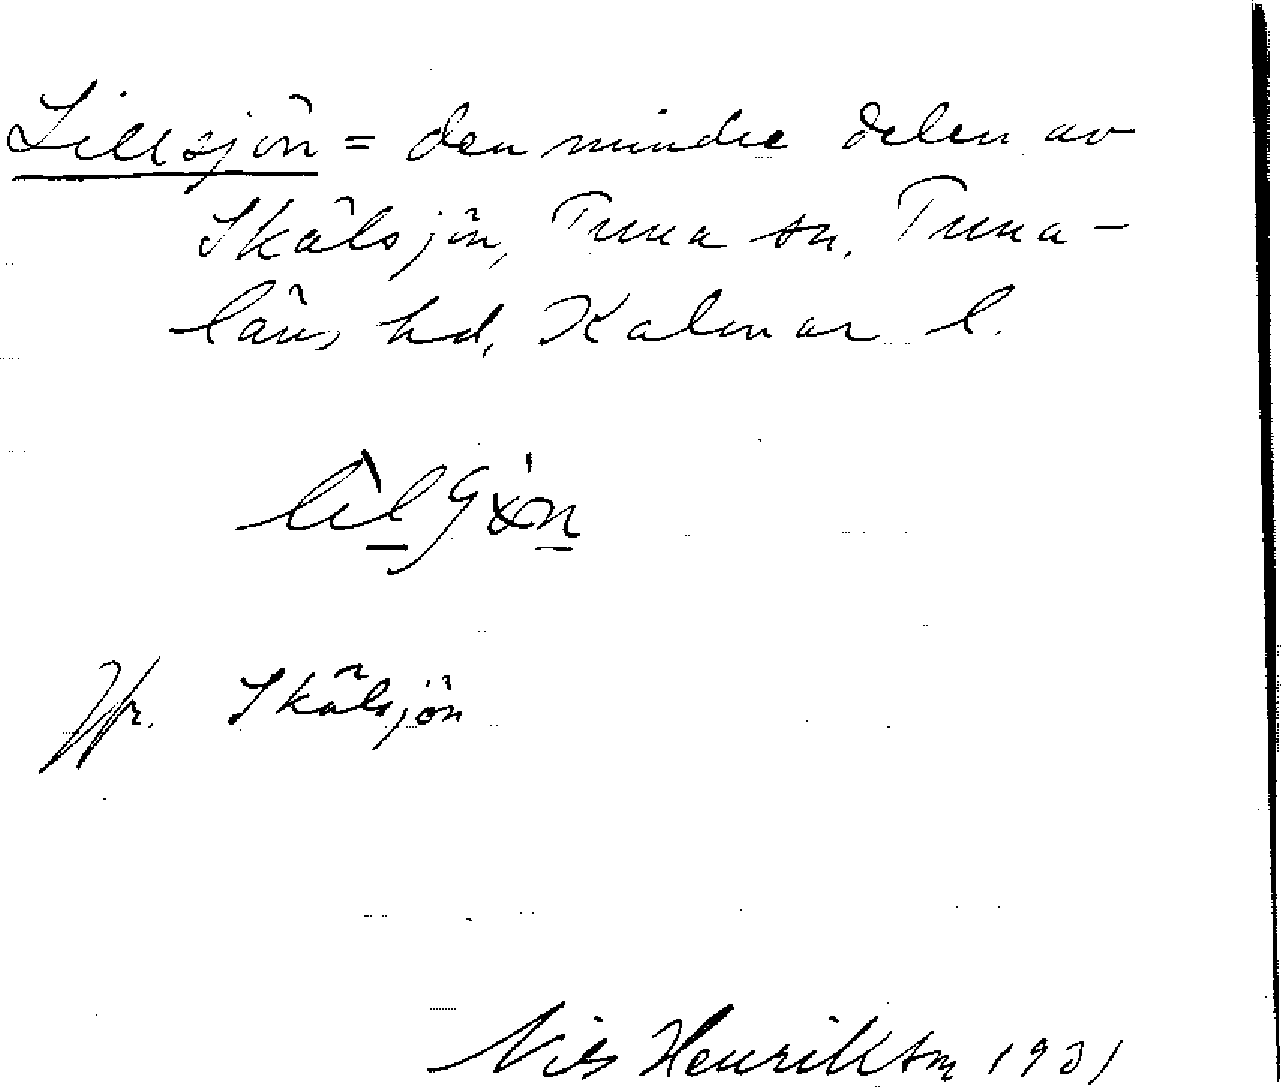 Lillsjön = den mindre delen av
Skälsjön, Tuna sn, Tuna-
läns hd, Kalmar l.
Jfr. Skälsjön
Nils Henrikson 1931